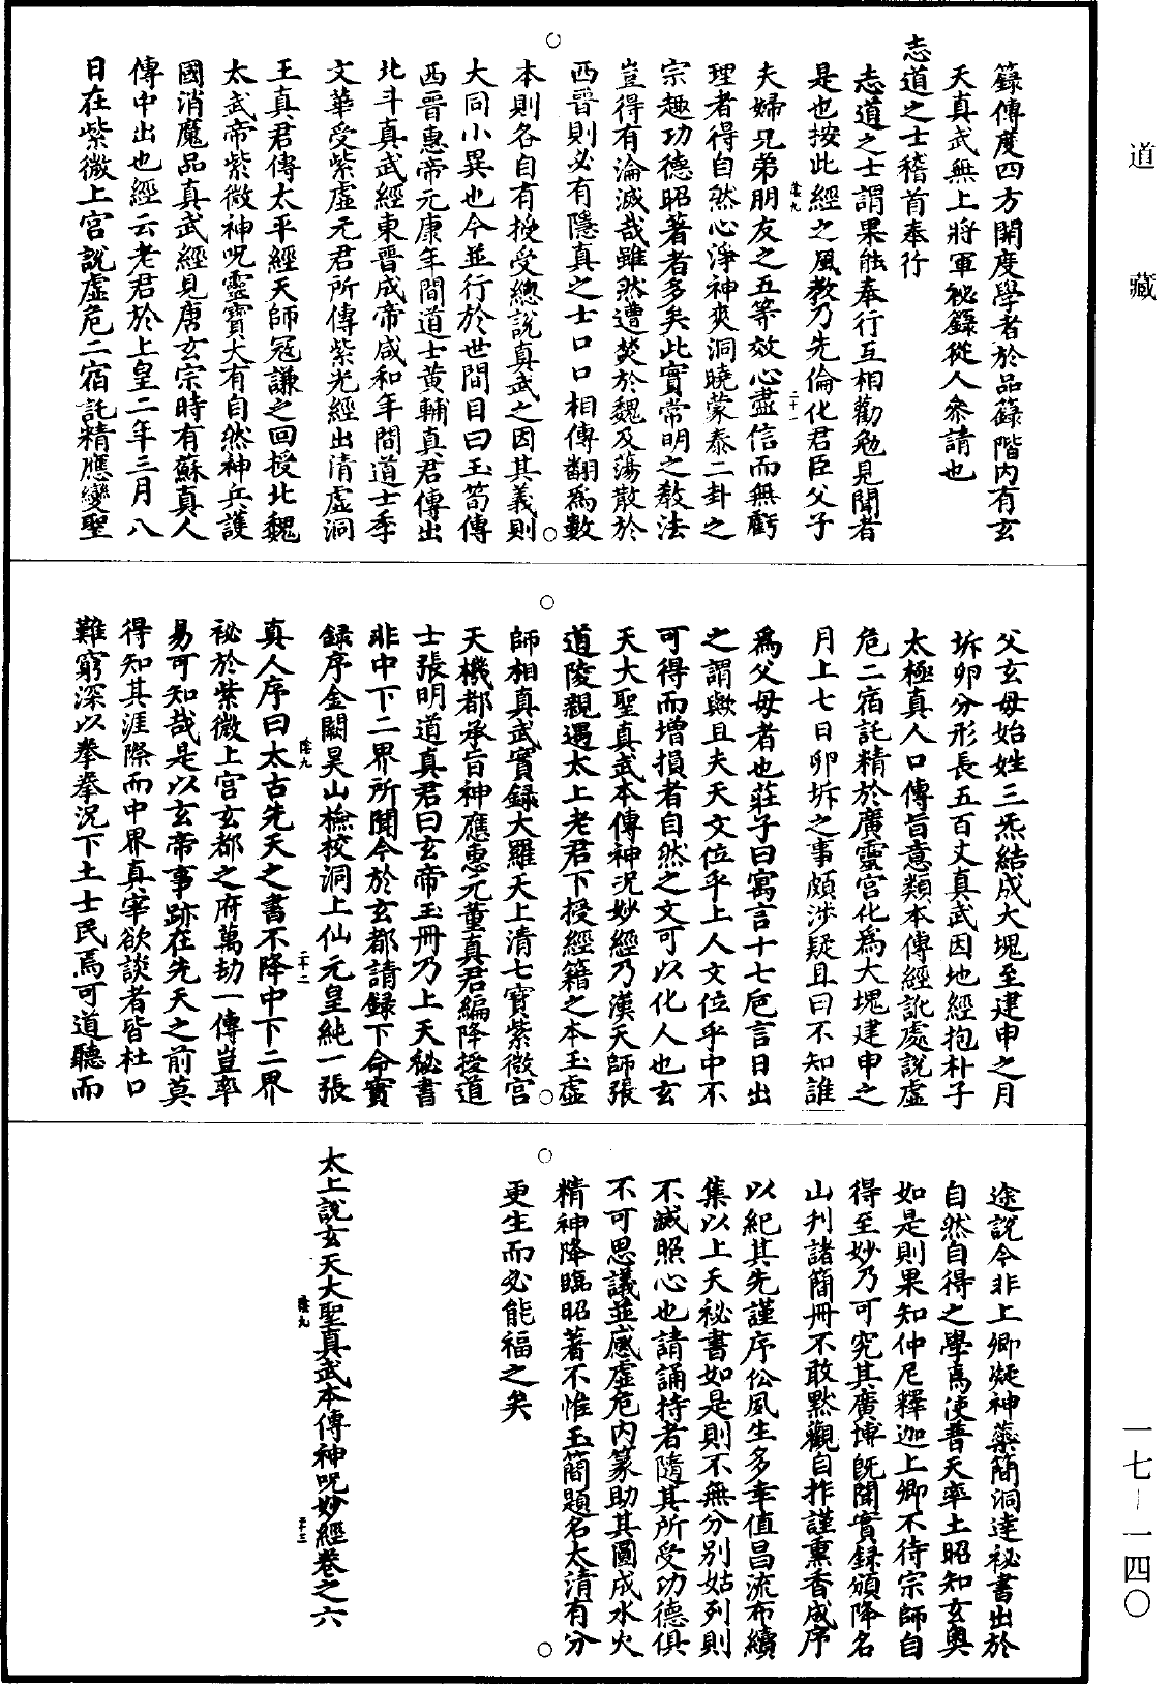 道藏
籙傳度四方開度學者於品籙階內有玄
天真武無上將軍祕籙從人叅請也
志道之士稽首奉行
志道之士謂果能奉行互相勸勉見聞者
是也按此經之風教乃先倫化君臣父子
夫婦兄弟朋友之五等效心盡信而無虧
理者得自然心淨神爽洞曉蒙泰二卦之
宗趣功德昭著者多矣此實常明之教法
豈得有淪滅哉雖然遭焚於魏及蕩散於
西晉則必有隱真之士口口相傳翻為數
本則各自有授受緫說真武之因其義則
大同小異也今並行於世間目曰玉笥傳
西晉惠帝元康年間道士黃輔真君傳出
北斗真武經東晉成帝咸和年間道士季
文華受紫虛元君所傳紫光經出清虛洞
王真君傳太平經天師冦謙之回授北魏
太武帝紫微神呪靈寶大有自然神兵護
國消魔品真武經見唐玄宗時有蘇真人
傳中出也經云老君於上皇二年三月八
日在紫微上宮說虛危二宿託精應變聖
父玄母始姓三炁結成大塊至建申之月
坼卵分形長五百丈真武因地經抱朴子
太極真人口傳旨意類本傳經訛處說虛
危二宿託精於廣靈宮化為大塊建申之
月上七日卵坼之事頗涉疑且曰不知誰
為父母者也莊子曰寓言十七巵言日出
之謂歟且夫天文位乎上人文位乎中不
可得而增損者自然之文可以化人也玄
天大聖真武本傳神況妙經乃漢天師張
道陵親遇太上老君下授經籍之本玉虛
師相真武實録大羅天上清七寶紫微宮
天機都承旨神應惠元董真君編降授道
士張明道真君曰玄帝玉冊乃上天秘書
非中下二界所聞今於玄都請録下命實
録序金闕昊山檢校洞上仙元皇純一張
真人序曰太古先天之書不降中下二界
祕於紫微上宮玄都之府萬劫一傳豈率
易可知哉是以玄帝事跡在先天之前莫
得知其涯際而中界真宰欲談者皆杜口
難窮深以拳拳況下土士民焉可道聽而
途說今非上卿凝神藥簡洞達祕書出於
自然自得之學焉使普天率土昭知玄奧
如是則果知仲尼釋迦上卿不待宗師自
得至妙乃可究其廣博旣聞實録頒降名
山刋諸簡冊不敢默觀自作謹熏香成序
以紀其先謹序伀風生多幸值昌流布續
集以上天祕書如是則不無分別姑列則
不滅照心也請誦持者隨其所受功德俱
不可思議並感虛危內篆助其圓成水火
精神降臨昭著不惟玉簡題名太清有分
更生而必能福之矣
太上說玄天大聖真武本傳神呪妙經卷之六
一七-一四〇